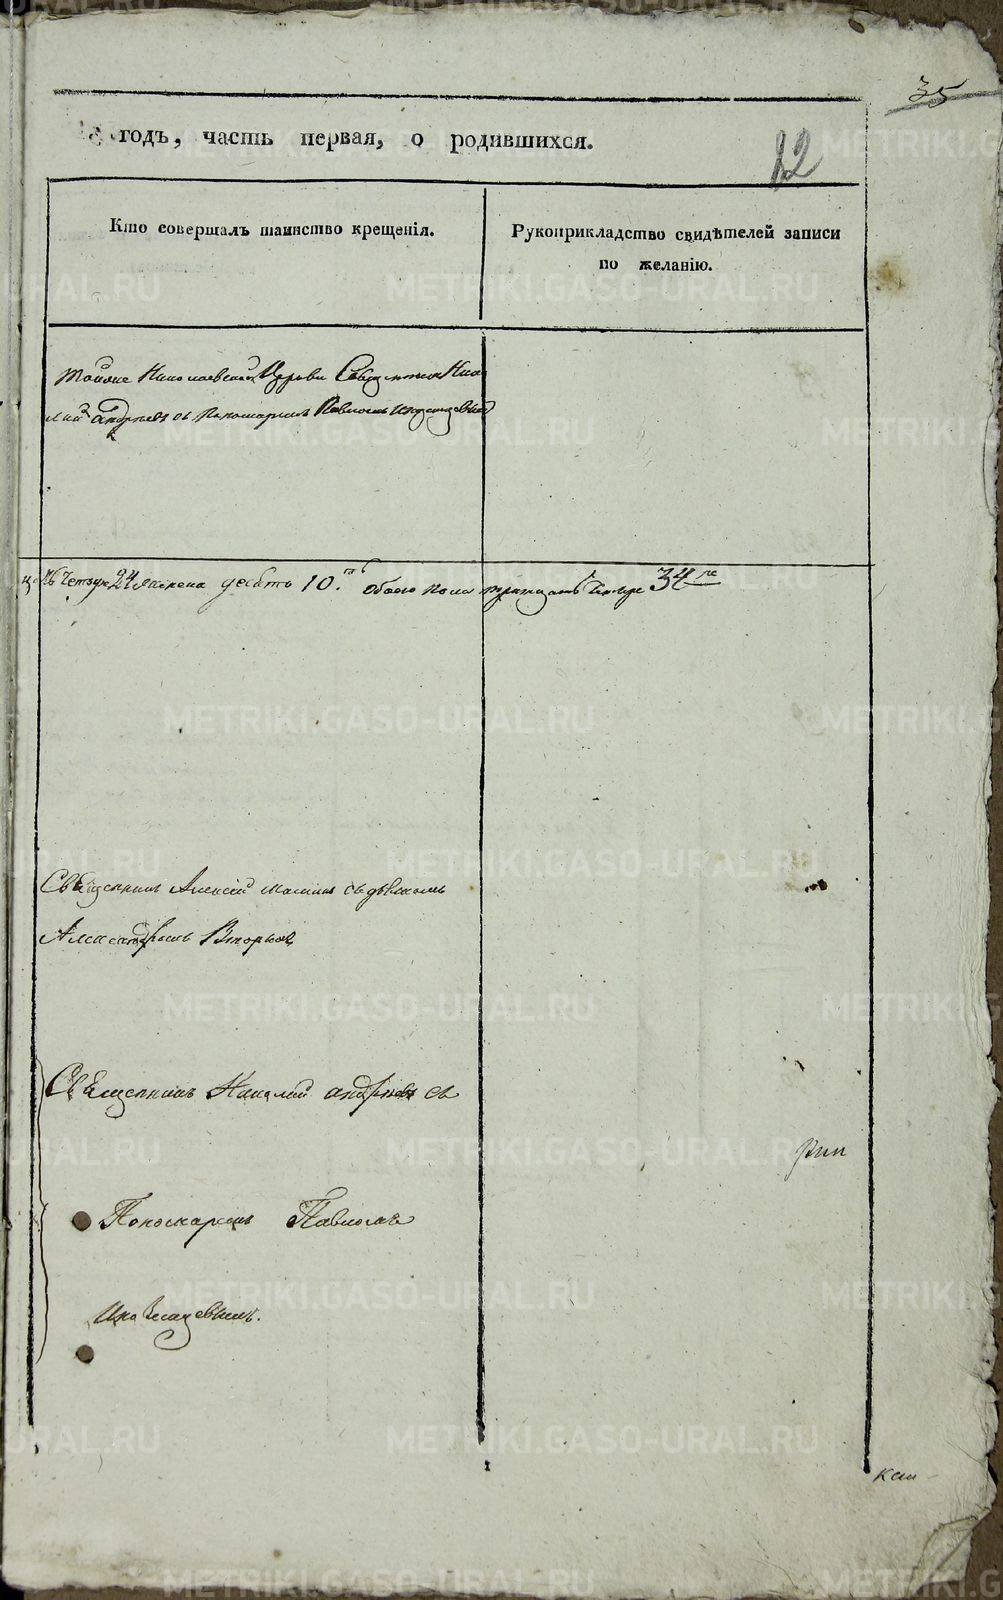 35
годъ, часть первая, о родившихся.
12
Кто совершалъ таинство крещенія.
Рукоприкладство свидѣтелей записи
по желанію.
тойже Николаевской Церкви Священник Нико
лай Андреев съ Пономаремъ Павломъ
24 женска десять 10. обоего пола тритцать четыре 34
Священникъ Алексей съ дьякомъ
Александромъ
Священникъ Николай Андреев съ
Пономаремъ Павломъ
METRIKI.GASO-URAL.RU